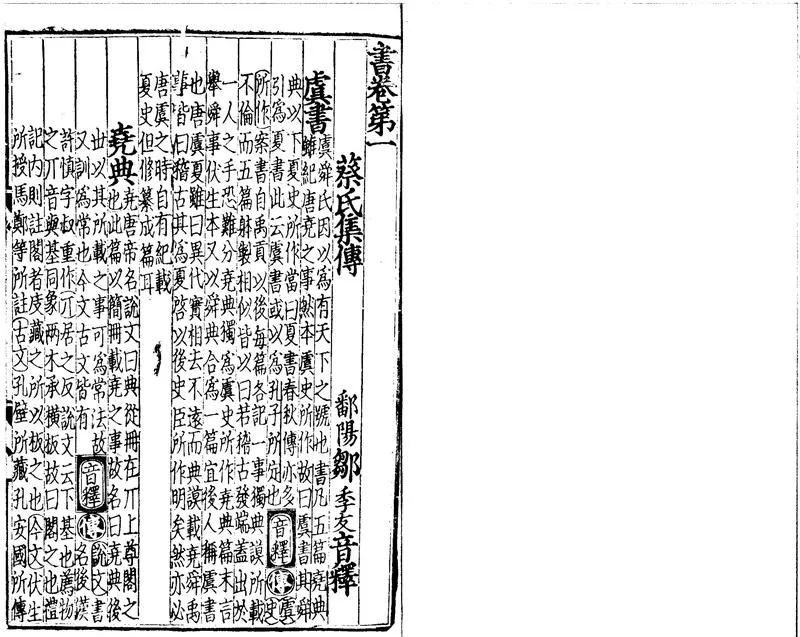 書卷第一
蔡氏集傳 鄱陽鄒季友音釋
虞書 虞舜氏因以爲有天下之號也書凡五篇堯典
雖紀唐堯之事然本虞史所作故曰虞書其舜
典以下夏史所作當曰夏書春秋傳亦多
引爲夏書此云虞書或以爲孔子所定也 音釋 傳 虞史
所作案書自禹貢以後每篇各記一事獨典謨所載
不倫而五篇躰製相似皆以曰若稽古發端蓋出於
一人之手恐難分堯典獨爲虞史所作堯典篇末言
舉舜事伏生本又以舜典合爲一篇宜後人稱虞書
也唐虞夏雖曰異代實相去不遠而典謨載堯舜禹
事皆曰稽古其爲夏啓以後史臣所作明矣然亦必
唐虞之時自有紀載
夏史但修纂成篇耳
堯典 堯唐帝名說文曰典從冊在丌上尊閣之
也此篇以簡冊載堯之事故名曰堯典後
世以其所載之事可爲常法故
又訓爲常也今文古文皆有 音釋 傳 說文書名後漢
許慎字叔重作丌居之反說文云下基也薦物
之丌音與基同象兩木承橫板故曰閣之也禮
記內則註閣者庋藏之所以板之也今文伏生
所授馬鄭等所註古文孔壁所藏孔安國所傳